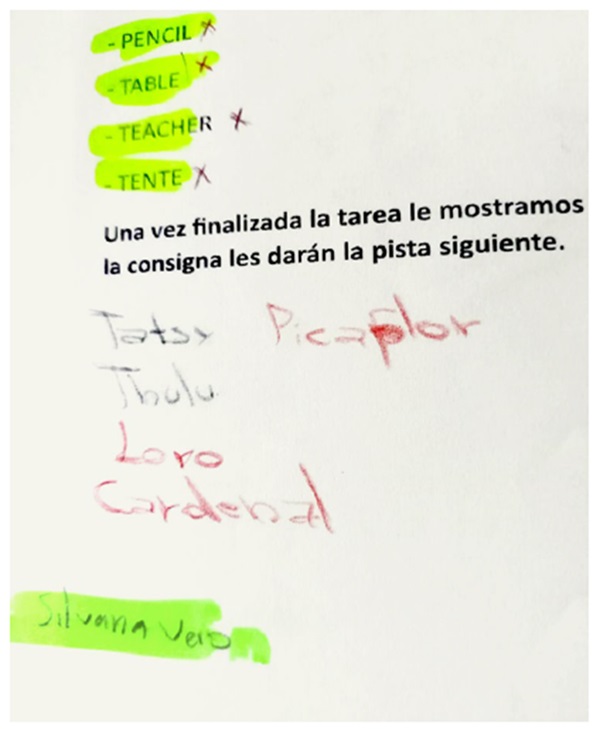 - PENCIL X
- TABLE X
- TEACHER X
- TENTE X
Una vez finalizada la tarea le mostramos
la consigna les darán la pista siguiente.
Tatsy Picaflor
Thulu
Loro
Cardenal
Silvana Vero